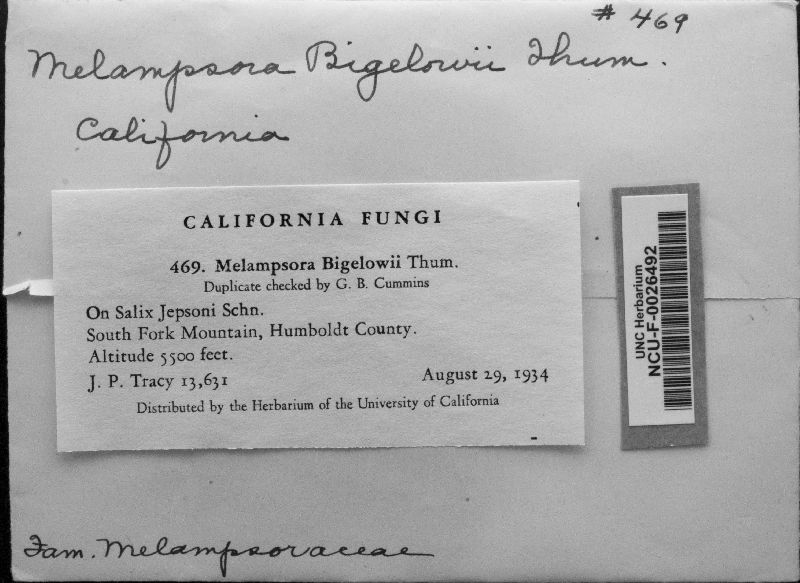 # 469
Melampsora Bigelowii Thum.
California
CALIFORNIA FUNGI
469. Melampsora Bigelowii Thum.
Duplicate checked by G. B. Cummins
On Salix Jepsoni Schn.
South Fork Mountain, Humboldt County.
Altitude 5500 feet.
J. P. Tracy 13,631 August 29, 1934
Distributed by the Herbarium of the University of California
UNC Herbarium
NCU-F-0026492
Fam. Melampsoraceae